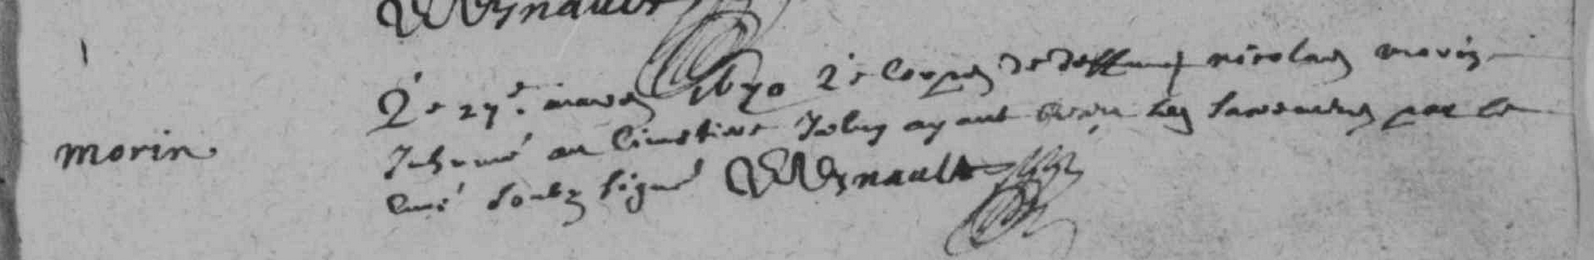 Regnault
Le 27e. mars 1670 Le Corps de deffunct nicolas morin
morin. Inhumé au Cimetiere Iceluy ayant receu les sacrements par le
Curé soubz signé Regnault